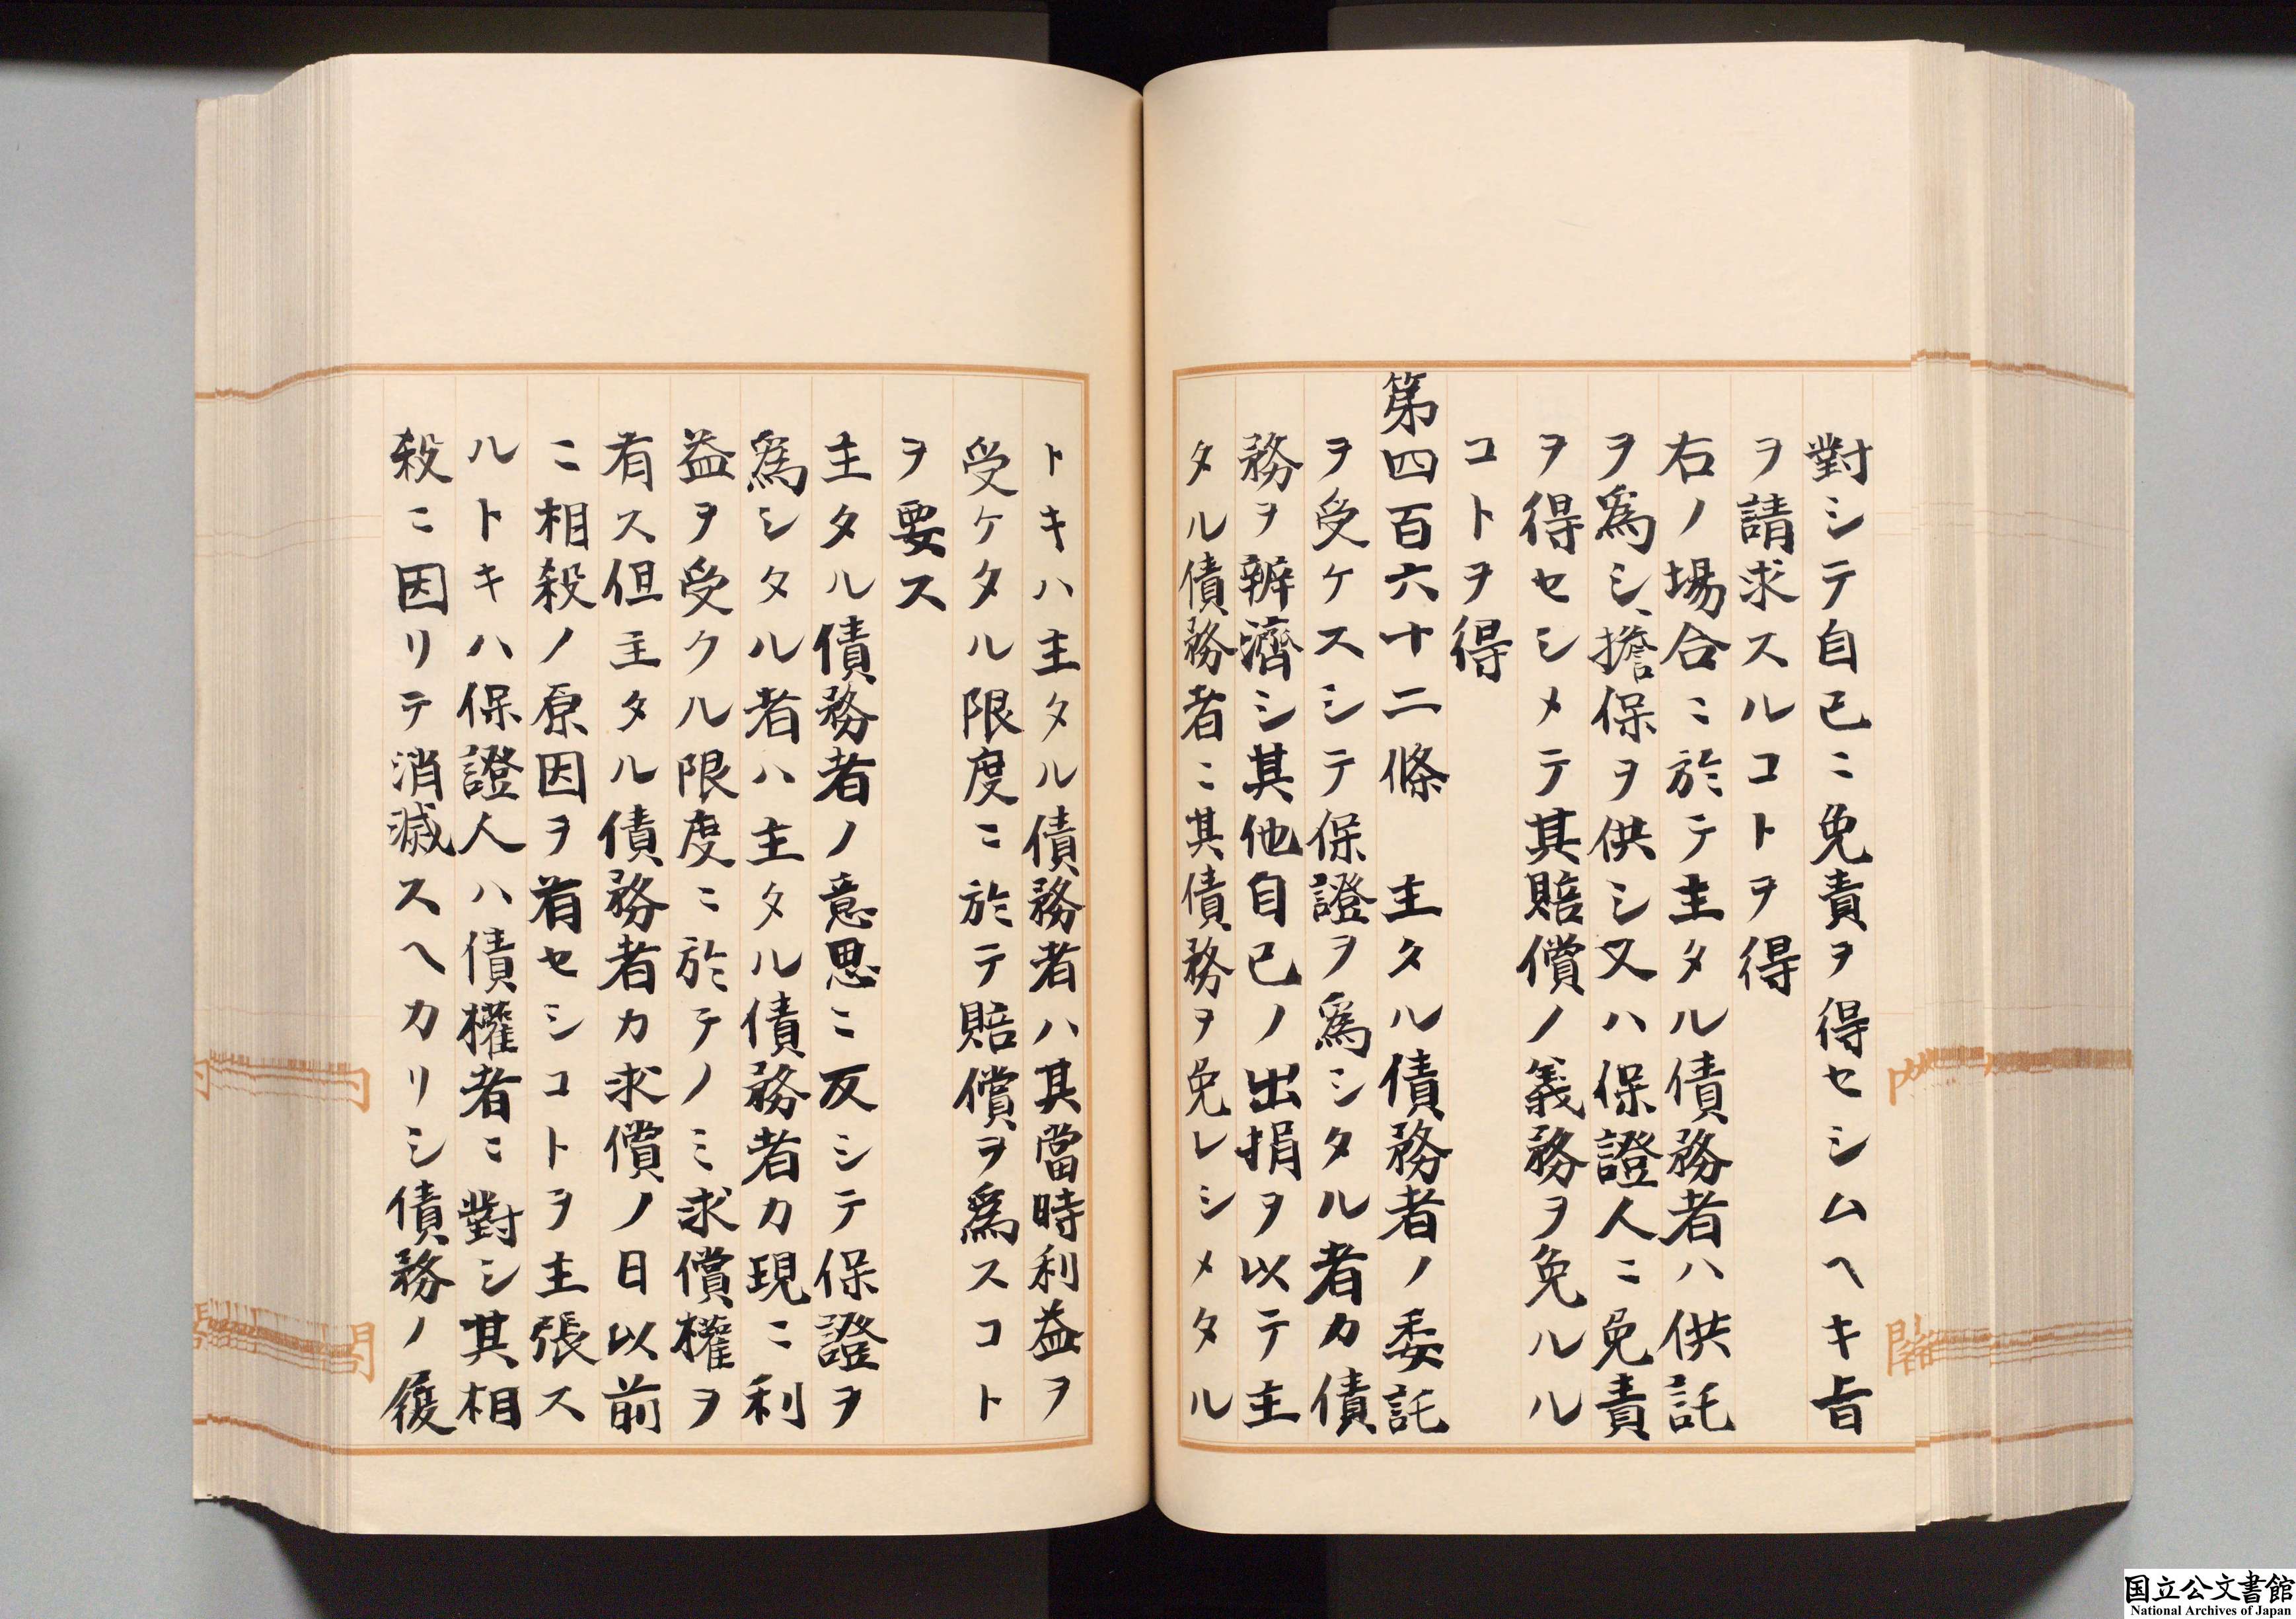 對シテ自己ニ免責ヲ得セシムヘキ旨
ヲ請求スルコトヲ得
右ノ場合ニ於テ主タル債務者ハ供託
ヲ爲シ、擔保ヲ供シ又ハ保證人ニ免責
ヲ得セシメテ其賠償ノ義務ヲ免ルル
コトヲ得
第四百六十二條 主タル債務者ノ委託
ヲ受ケスシテ保證ヲ爲シタル者カ債
務ヲ辨濟シ其他自己ノ出捐ヲ以テ主
タル債務者ニ其債務ヲ免レシメタル
トキハ主タル債務者ハ其當時利益ヲ
受ケタル限度ニ於テ賠償ヲ爲スコト
ヲ要ス
主タル債務者ノ意思ニ反シテ保證ヲ
爲シタル者ハ主タル債務者カ現ニ利
益ヲ受クル限度ニ於テノミ求償權ヲ
有ス但主タル債務者カ求償ノ日以前
ニ相殺ノ原因ヲ有セシコトヲ主張ス
ルトキハ保證人ハ債權者ニ對シ其相
殺ニ因リテ消滅スヘカリシ債務ノ履
内閣
国立公文書館
National Archives of Japan